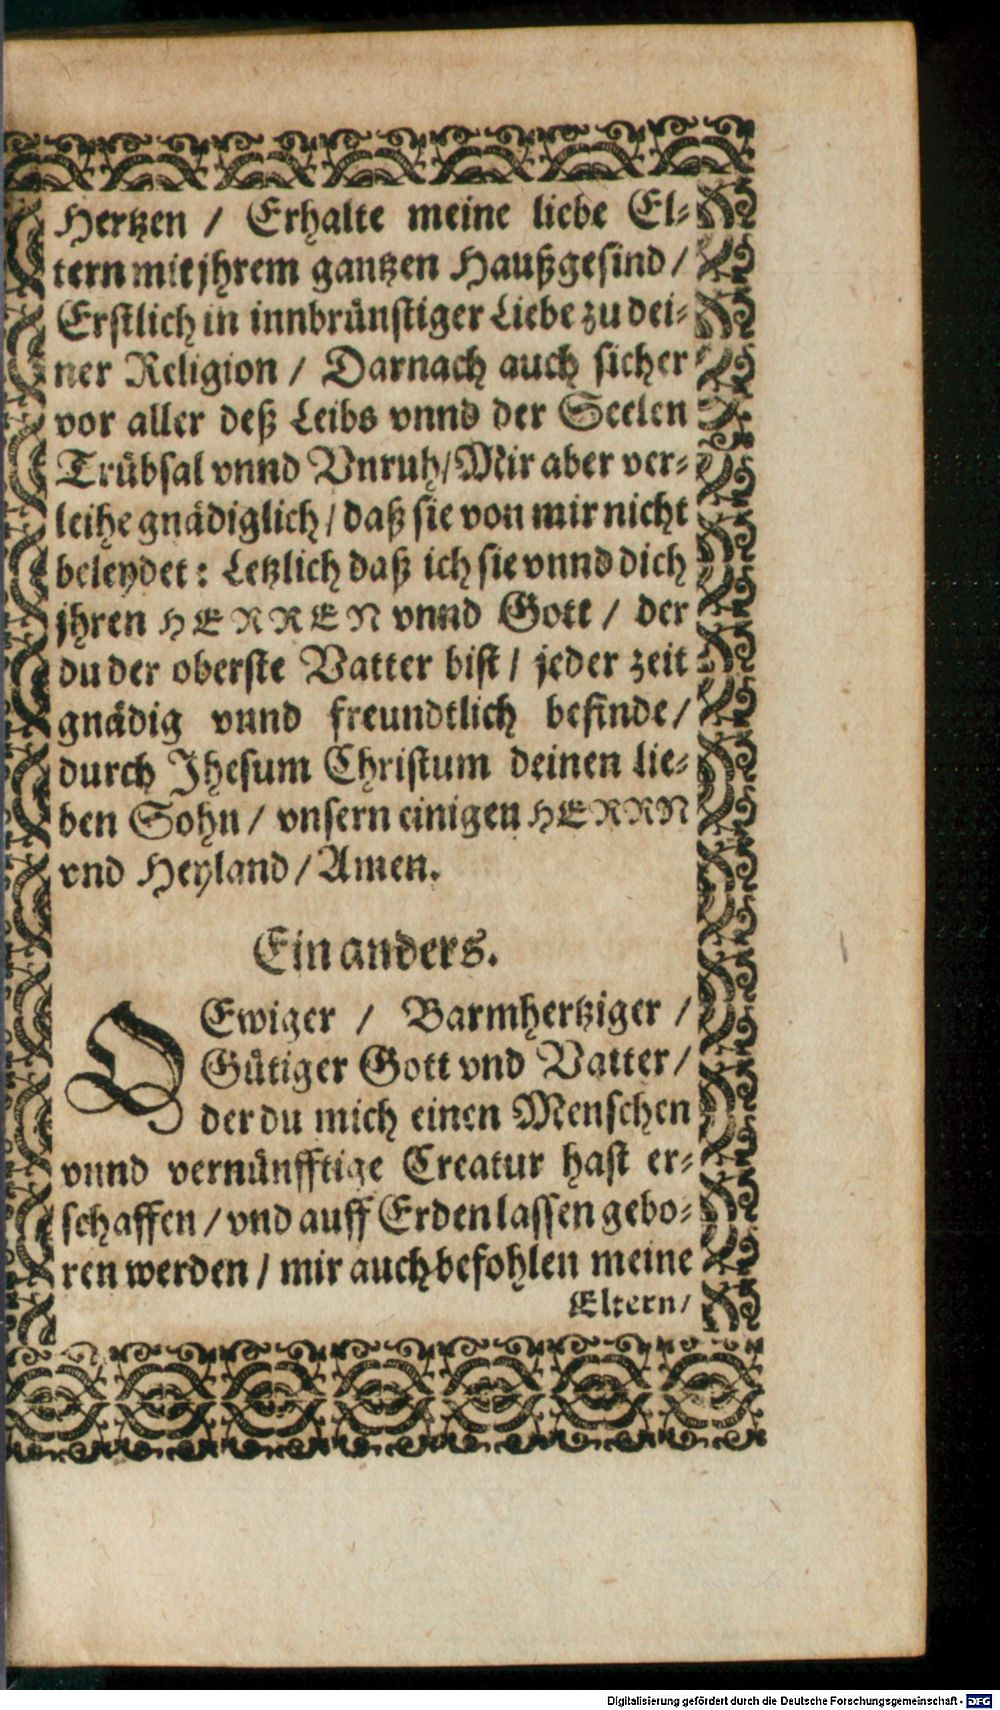 Hertzen / Erhalte meine liebe El⸗
tern mit jhrem gantzen Haußgesind /
Erstlich in innbrünstiger Liebe zu dei⸗
ner Religion / Darnach auch sicher
vor aller deß Leibs vnnd der Seelen
Trübsal vnnd Vnruh / Mir aber ver⸗
leihe gnädiglich / daß sie von mir nicht
beleydet : Letzlich daß ich sie vnnd dich
jhren HERREN vnnd Gott / der
du der oberste Vatter bist / jeder zeit
gnädig vnnd freundtlich befinde /
durch Jhesum Christum deinen lie⸗
ben Sohn / vnsern einigen HERRN
vnd Heyland / Amen.
Ein anders.
O Ewiger / Barmhertziger /
Gütiger Gott vnd Vatter /
der du mich einen Menschen
vnnd vernünfftige Creatur hast er⸗
schaffen / vnd auff Erden lassen gebo⸗
ren werden / mir auch befohlen meine
Eltern /
Digitalisierung gefördert durch die Deutsche Forschungsgemeinschaft - DFG